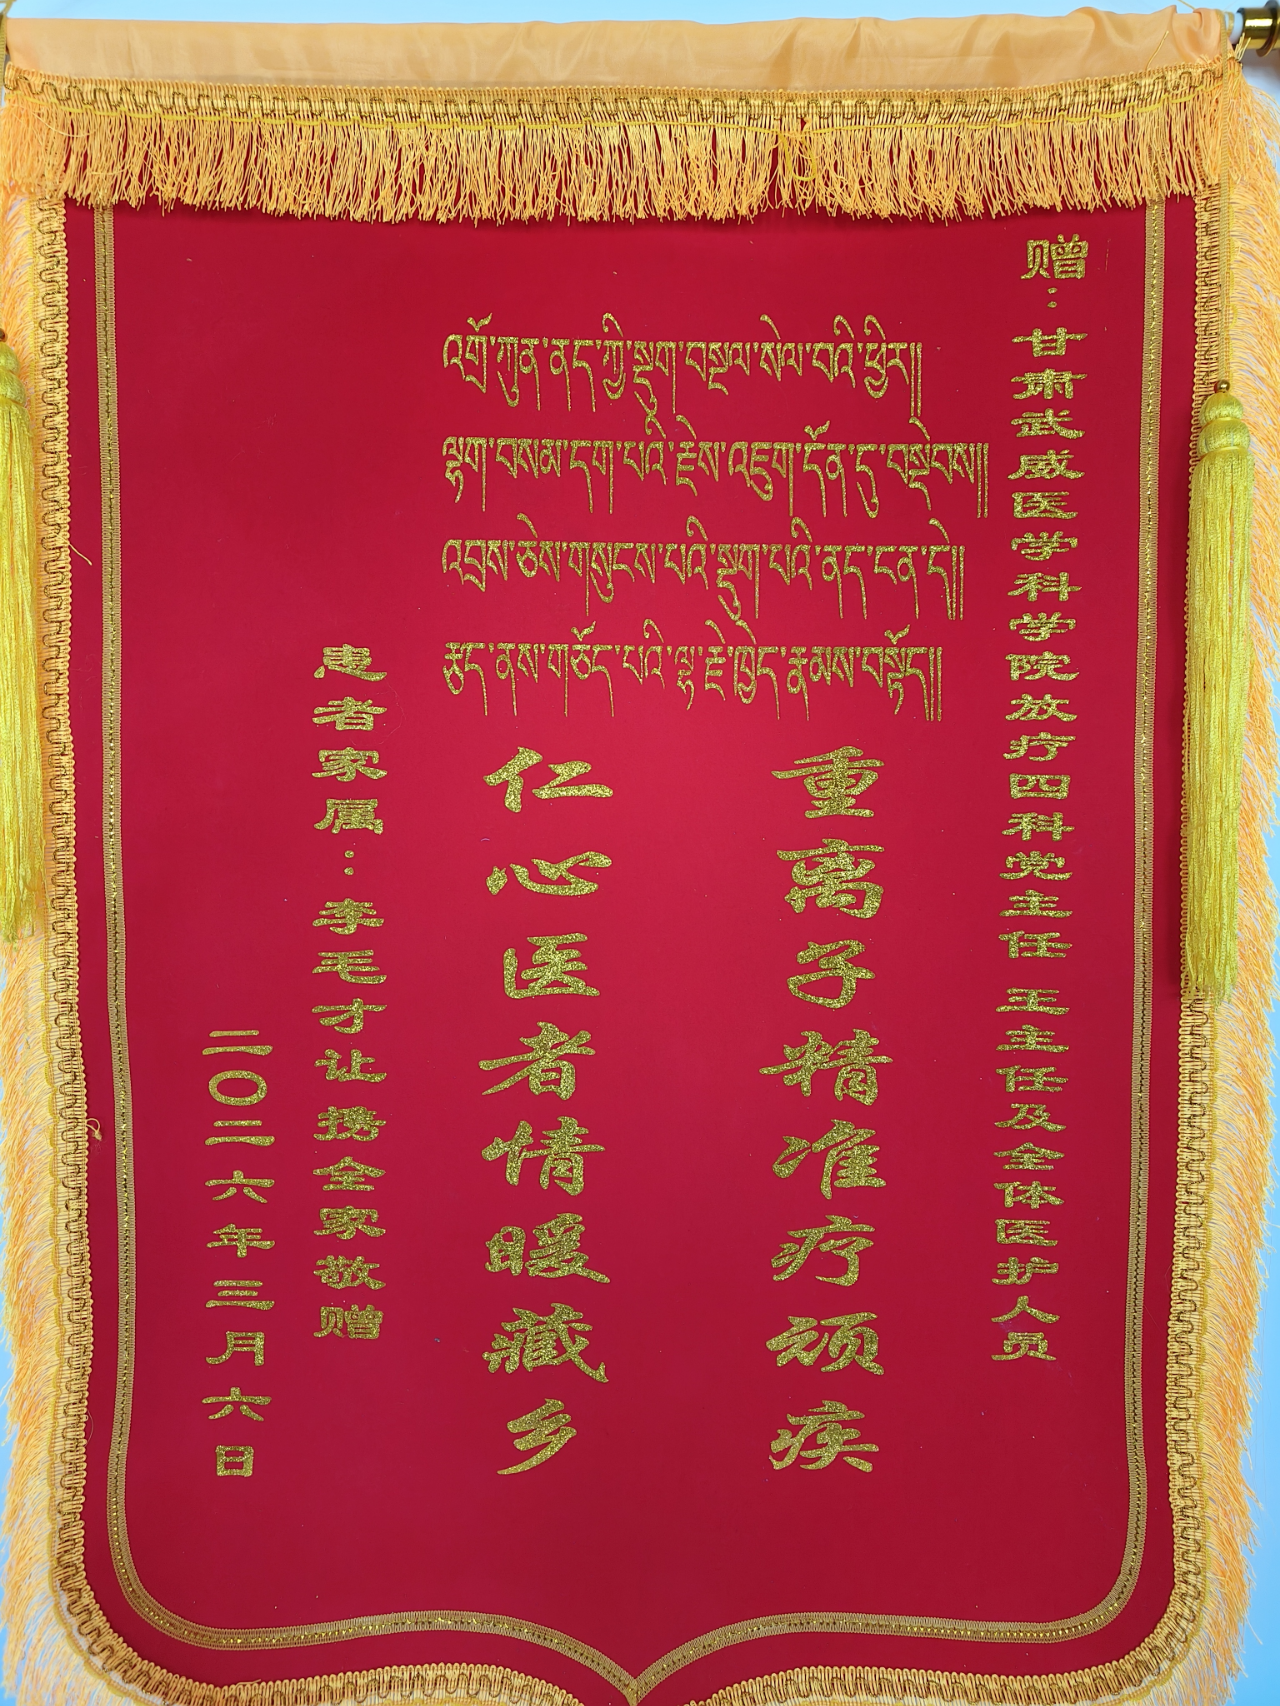 赠：甘肃武威医学科学院放疗四科党主任 王主任及全体医护人员
འགྲོ་ཀུན་ནད་ཀྱི་སྡུག་བསྔལ་སེལ་བའི་ཕྱིར།།
ལྷག་བསམ་དག་པའི་རྗེས་འཇུག་དོན་དུ་བསྡེབས།།
འབྲས་ཅེས་གསུངས་པའི་སྡུག་པའི་ནད་ངན་དེ།།
རྩད་ནས་གཅོད་པའི་ལྷ་རྗེ་ཁྱེད་རྣམས་བསྟོད།།
重离子精准疗顽疾
仁心医者情暖藏乡
患者家属：李毛才让携全家敬赠
二〇二六年三月六日